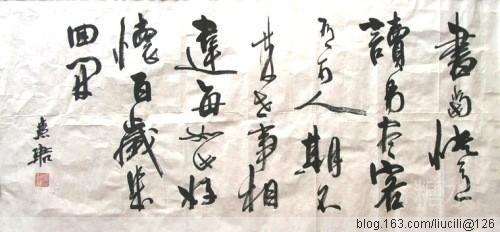 書當快意
讀易尽客
有可人期不
来世事相
違每如此好
懷百歲幾
回開
blog.163.com/liucili@126